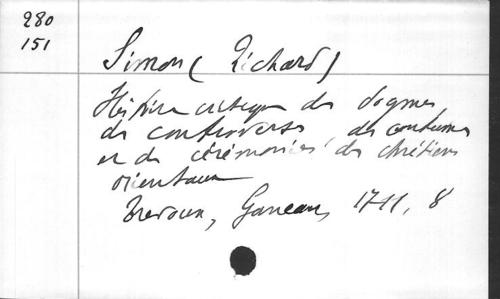 280
151
Simon (Richard)
Histoire critique des dogmes,
des controverses, des coutumes
et des cérémonies des chrétiens
orientaux
Trevoux, Ganeau, 1711, 8